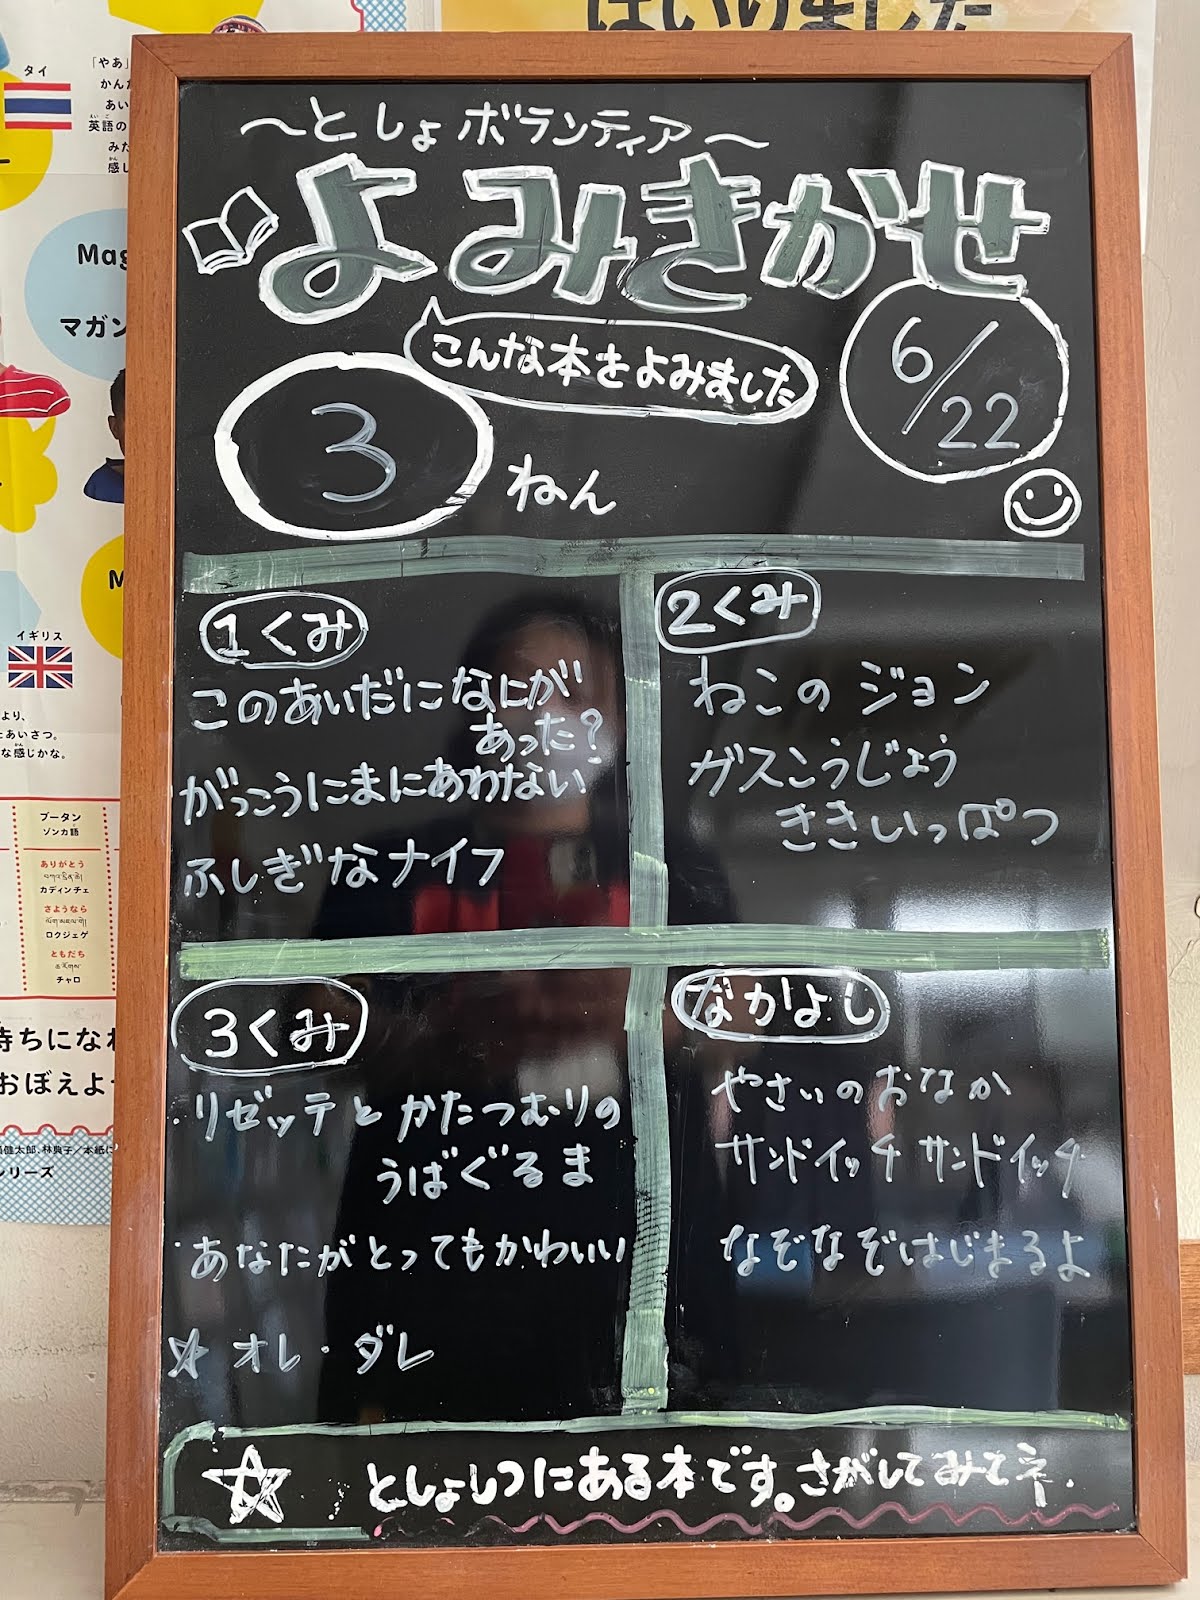 はいりました
タイ
「やあ」
かん
あい
英語の
えいご
みた
感し
かん
Mag
マガン
M
イギリス
より、
とあいさつ。
な感じかな。
かん
ブータン
ゾンカ語
ありがとう
カディンチェ
さようなら
ロクジェゲ
ともだち
チャロ
待ちになれ
おぼえよ
健太郎、林典子／本紙に
シリーズ
〜としょボランティア〜
よみきかせ
こんな本をよみました
6/22
3ねん
1くみ
このあいだになにが
あった?
がっこうにまにあわない
ふしぎなナイフ
2くみ
ねこのジョン
ガスこうじょう
ききいっぱつ
3くみ
・リゼッテとかたつむりの
うばぐるま
・あなたがとってもかわいい
☆オレ・ダレ
なかよし
やさいのおなか
サンドイッチ サンドイッチ
なぞなぞはじまるよ
☆ としょしつにある本です。さがしてみてネ.